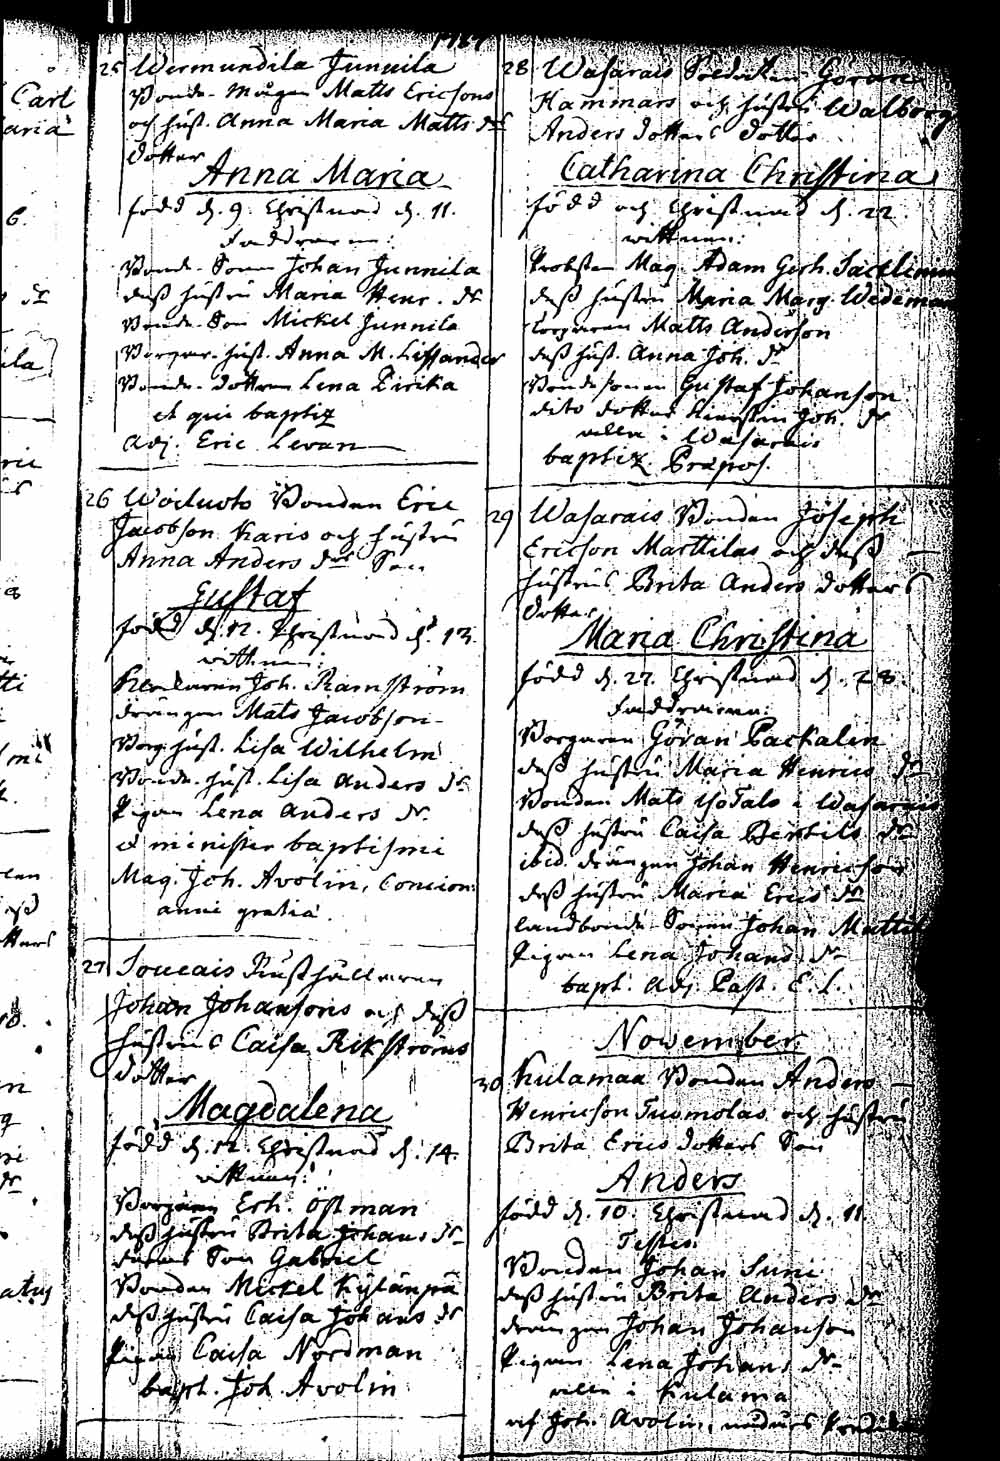 1767
25 Wermundila Junnila
Bonde-Mågen Matts Ericsons
och hust. Anna Maria Matts drs
dotter
Anna Maria
född d. 9. Christnad d. 11.
Faddrarne:
Bonde-Sonen Johan Junnila
dess hustru Maria Henr. dr
Bonde-Son Mickel Junnila
hust. Anna M. Lissander
Bonde-dottren Lena Pirika
et qui baptiz
Adj. Eric Levan
26 Bonden Eric
Jacobson Karis och hustru
Anna Anders drs Son
Gustaf
född d. 12. Christnad d. 13.
wittnen:
Joh. Ramström
drängen Mats Jacobson
Borg. hust. Lisa Wilhelm
Bonde-hust. Lisa Anders dr
Pigan Lena Anders dr
et minister baptismi
Mag. Joh. Avolin, Concion:
anni gratiæ.
27 Soucais Rusthållaren
Johan Johansons och dess
hustrus Caisa Rikströms
dotter
Magdalena
född d. 12. Christnad d. 14.
wittnen:
Borgaren Erh. Östman
dess hustru Brita Johans dr
deras Son Gabriel
Bonden Mickel Kylänpä
dess hustru Caisa Johans dr
Pigan Caisa Nordman
bapt. Joh. Avolin
28 Wasarais Göran
Hammars och hustru Walborg
Anders dotters dotter
Catharina Christina
född och Christnad d. 22.
wittnen:
Probsten Mag. Adam Gerh. Sacklinius
dess hustru Maria Marg. Wedeman
Borgaren Matts Anderson
dess hust. Anna Joh. dr
Bondesonen Gustaf Johanson
dito dotter Kirstin Joh. dr
alla i Wasarais
baptiz. Præpos.
29 Wasarais Bonden Joseph
Ericson Marttilas och dess
hustrus Brita Anders dotters
dotter
Maria Christina
född d. 27. Christnad d. 28.
Faddrarne:
Borgaren Göran Packalen
dess hustru Maria Henrics dr
Bonden Mats Isotalo i Wasarais
dess hustru Caisa Bertils dr
ibid. drängen Johan Henricson
dess hustru Maria Erics dr
landbonde-Sonen Johan Mattil
Pigan Lena Johans dr
bapt. Adj. Past. E. L.
November
30 Kulamaa Bonden Anders
Henricson Tuomolas och hustru
Brita Erics dotters Son
Anders
född d. 10. Christnad d. 11.
Testes:
Bonden Johan Suni
dess hustru Brita Anders dr
drängen Johan Johanson
Pigan Lena Johans dr
alla i Kulama
af Joh. Avolin,